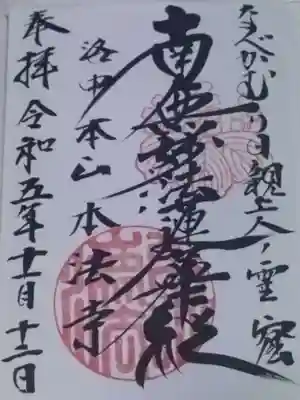 なべかむり日親上人ノ霊窟
南無妙法蓮華経
洛中本山 本法寺
奉拝 令和五年十二月十二日